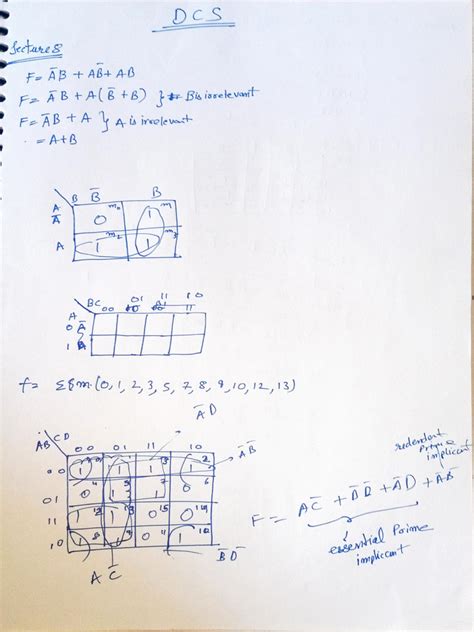 DCS
Lecture 8
F = A̅B + AB̅ + AB
F = A̅B + A(B̅ + B) } B is irrelevant
F = A̅B + A } A is irrelevant
= A+B
B B̅ B
A
A̅ 0 m₀ 1 m₁
A 1 m₂ 1 m₃
BC 00 01 11 10
A
0 A̅
1 A
f = Σm (0, 1, 2, 3, 5, 7, 8, 9, 10, 12, 13)
A̅D
CD
AB 00 01 11 10
A̅B̅
00 1 0 1 1 1 3 1 2
01 0 4 1 5 1 7 0 6
11 1 12 1 13 0 15 0 14
10 1 8 1 9 0 11 1 10
B̅D̅
AC̅
redendant
Prime
implicant
F = AC̅ + B̅D̅ + A̅D + A̅B̅
essential Prime
implicant